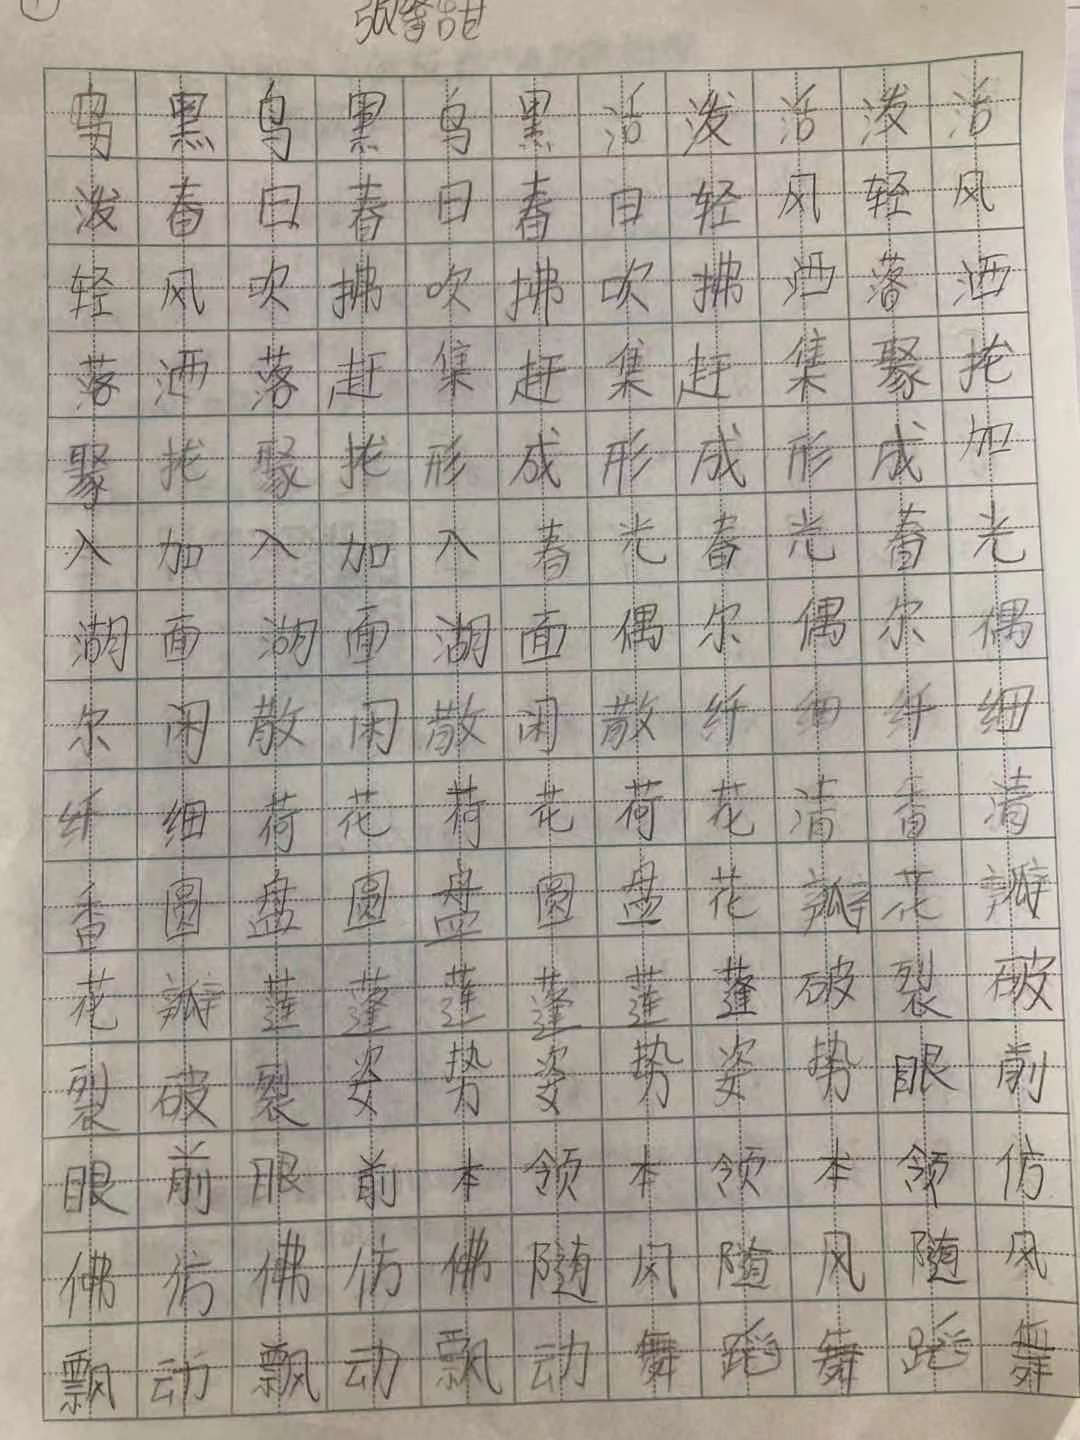 乌黑乌黑乌黑活泼活泼活
泼春日春日春日轻风轻风
轻风吹拂吹拂吹拂洒落洒
落洒落赶集赶集赶集聚拢
聚拢聚拢形成形成形成加
入加入加入春光春光春光
湖面湖面湖面偶尔偶尔偶
尔闲散闲散闲散纤细纤细
纤细荷花荷花荷花清香清
香圆盘圆盘圆盘花瓣花瓣
花瓣莲蓬莲蓬莲蓬破裂破
裂破裂姿势姿势姿势眼前
眼前眼前本领本领本领仿
佛仿佛仿佛随风随风随风
飘动飘动飘动舞蹈舞蹈舞